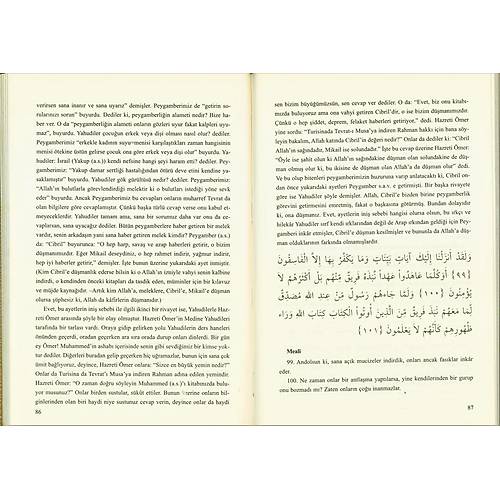 verirsen sana inanır ve sana uyarız" demişler. Peygamberimiz de "getirin so-
rularınızı soron" buyurdu. Dediler ki, peygamberliğin alameti nedir? Bize ha-
ber ver. O da "peygamberliğin alameti onların gözleri uyur fakat kalpleri uyu-
maz", buyurdu. Yahudiler çocuğun erkek veya dişi olması nasıl olur? dediler.
Peygamberimiz "erkekle kadının suyu-menisi karşılaştıkları zaman hangisinin
menisi ötekine üstün gelirse çocuk ona göre erkek veya dişi olur" buyurdu. Ya-
hudiler; İsrail (Yakup (a.s.)) kendi nefsine hangi şeyi haram etti? dediler. Pey-
gamberimiz; "Yakup damar sertliği hastalığından ötürü deve etini kendine ya-
saklamıştır" buyurdu. Yahudiler bulutlardan soru sordular? Peygamberimiz:
"Allah'ın bulutlarla görevlendirdiği melektir ki o bulutları istediği yöne sevk
eder" buyurdu. Ancak Peygamberimiz bu cevapları onların muharref Tevrat da
olan bilgilere göre cevaplamıştır. Çünkü başka türlü cevap verse onu kabul et-
meyeceklerdir. Yahudiler tamam ama, sana bir sorumuz daha var onu da ce-
vaplarsan, sana uyacağız dediler. Bütün peygamberlere haber getiren bir melek
vardır, senin arkadaşın yani sana haber getiren melek kimdir? Peygamber (a.s.)
da: "Cibril" buyurunca: "O hep harp, savaş ve azap haberleri getirir, o bizim
düşmanımızdır. Eğer Mikail deseydiniz, o hep rahmet indirir, yağmur indirir,
hep iyi haberler getirir," demişler. İşte bunun üzerine yukarıdaki ayet inmiştir.
(Kim Cibril'e düşmanlık ederse bilsin ki o Allah'ın izniyle vahyi senin kalbine
indirdi, o kendinden önceki kitapları da tasdik eden, müminler için bir kılavuz
ve müjde kaynağıdır. –Artık kim Allah'a, meleklere, Cibril'e, Mikail'e düşman
olursa şüphesiz ki, Allah da kâfirlerin düşmanıdır.)
Evet, bu ayetlerin iniş sebebi ile ilgili ikinci bir rivayet ise, Yahudilerle Hazreti
Ömer arasında şöyle bir olay olmuştur. Hazreti Ömer'in Medine Yahudileri
tarafında bir tarlası vardı. Oraya gidip gelirken yolu Yahudilerin ders haneleri
önünden geçerdi, oradan geçerken ara sıra orada durup onları dinlerdi. Bir gün
ey Ömer! Muhammed'in ashabı içerisinde senin gibi sevdiğimiz bir kimse yok-
tur dediler. Diğerleri buradan gelip geçerken hiç uğramazlar, bunun için sana çok
ümit bağlıyoruz, dediler. Hazreti Ömer onlara: "Sizce en büyük yemin nedir?"
Onlar da Turisina da Tevrat'ı Musa'ya indiren Rahman adına edilen yemindir.
Hazreti Ömer: "O zaman doğru söyleyin Muhammed (a.s.)'ı kitabınızda bulu-
yor musunuz?" Onlar birden sustular, sükût ettiler. Bunun üzerine onların bil-
ginlerinden olan biri haydi niye sustunuz cevap verin, deyince onlar da haydi
86
sen bizim büyüğümüzsün, sen cevap ver dediler. O da: "Evet, biz onu kitabı-
mızda buluyoruz ama ona vahyi getiren Cibril'dir, o ise bizim düşmanımızdır.
Çünkü o hep şiddet, deprem, felaket haberleri getiriyor," dedi. Hazreti Ömer
yine sordu: "Turisinada Tevrat-ı Musa'ya indiren Rahman hakkı için bana söy-
leyin bakalım, Allah katında Cibril'in değeri nedir?" Onlar da: "Cibril Allah'ın
sağındadır, Mikail ise solundadır." İşte bu cevap üzerine Hazreti Ömer:
"Öyle ise şahit olun ki Allah'ın sağındakine düşman olan solundakine de düş-
man olmuş olur ki, bu ikisine de düşman olan Allah'a da düşman olur" dedi.
Ve bu olup bitenleri peygamberimizin huzuruna varıp anlatacaktı ki, Cibril on-
dan önce yukarıdaki ayetleri Peygamber s.a.v. e getirmişti. Bir başka rivayete
göre ise Yahudiler şöyle demişler. Allah, Cibril'e bizden birine peygamberlik
görevini getirmesini emretmiş, fakat o başkasına götürmüş. Bundan dolayıdır
ki, ona düşmanız. Evet, ayetlerin iniş sebebi hangisi olursa olsun, bu ırkçı ve
hilekâr Yahudiler sırf kendi ırklarından peygamber gelmediği için Pey-
gamberi inkâr etmişler, Cibril'e düşman kesilmişler ve bununla da Allah'a düşman
olduklarının farkında olmamışlardır.
وَلَقَدْ أَنزَلْنَا إِلَيْكَ آيَاتٍ بَيِّنَاتٍ وَمَا يَكْفُرُ بِهَا إِلاَّ الْفَاسِقُونَ
{٩٩} أَوَكُلَّمَا عَاهَدُوا عَهْداً نَّبَذَهُ فَرِيقٌ مِّنْهُم بَلْ أَكْثَرُهُمْ لاَ
يُؤْمِنُونَ {١٠٠} وَلَمَّا جَاءهُمْ رَسُولٌ مِّنْ عِندِ اللّهِ مُصَدِّقٌ
لِّمَا مَعَهُمْ نَبَذَ فَرِيقٌ مِّنَ الَّذِينَ أُوتُوا الْكِتَابَ كِتَابَ اللّهِ وَرَاء
ظُهُورِهِمْ كَأَنَّهُمْ لاَ يَعْلَمُونَ {١٠١}
Meali
99. Andolsun ki, sana açık mucizeler indirdik, onları ancak fasıklar inkâr
eder.
100. Ne zaman onlar bir antlaşma yaptılarsa, yine kendilerinden bir gurup
onu bozmadı mı? Zaten onların çoğu inanmazlar.
87